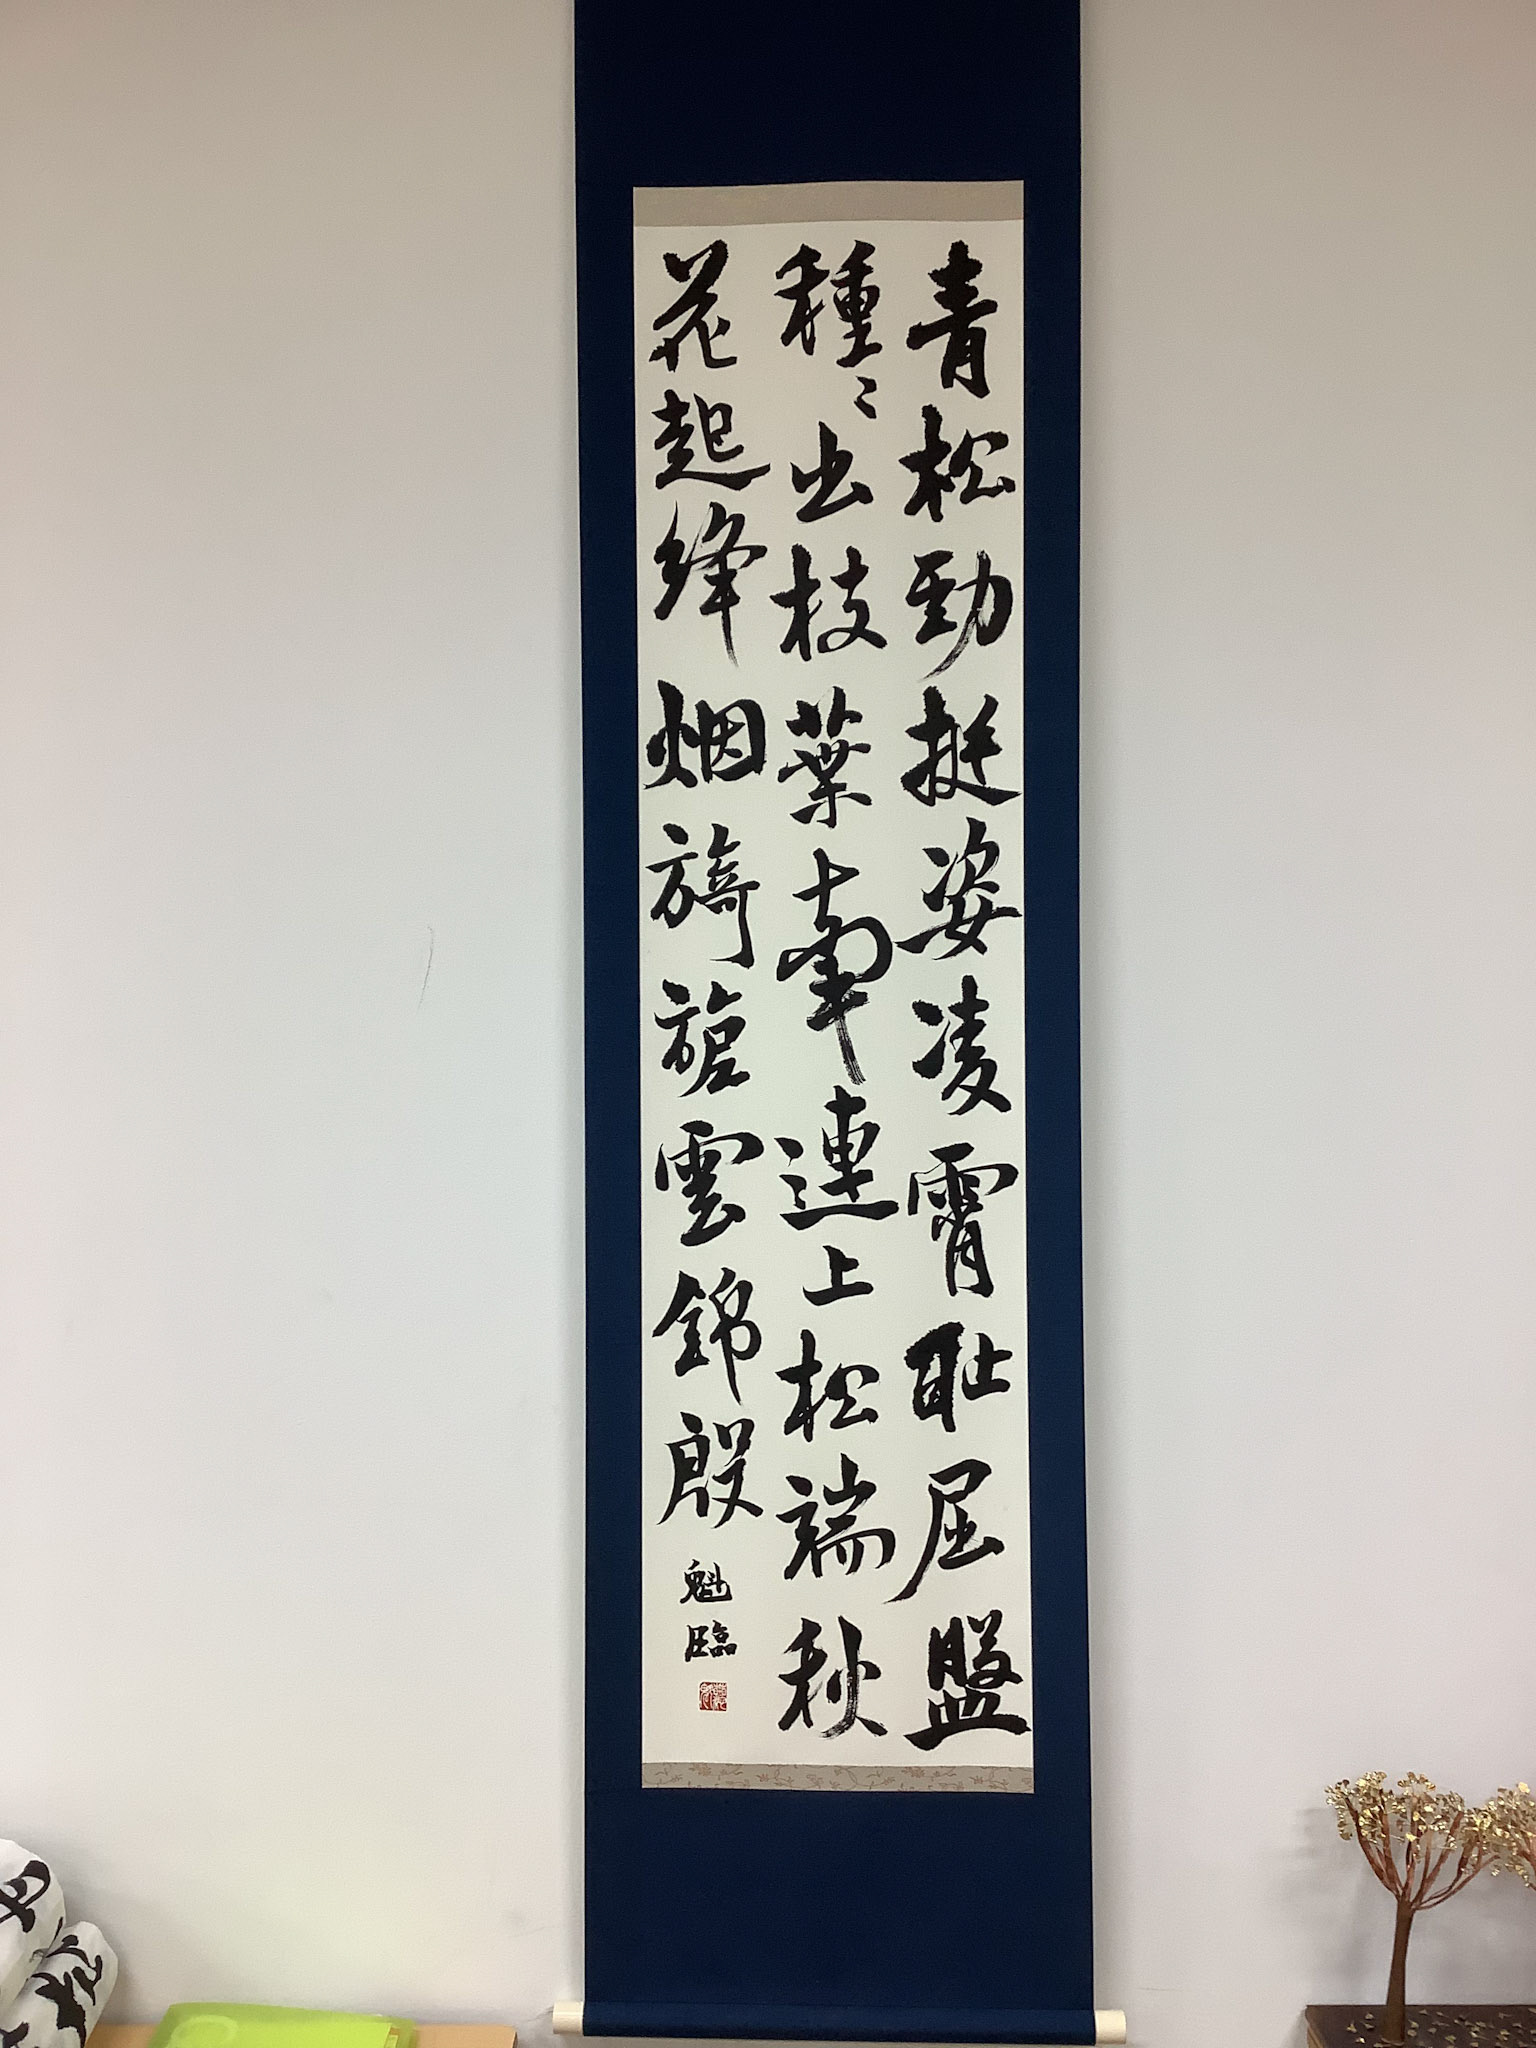 青松勁挺姿凌霄恥屈盤
種〻出枝葉牽連上松端秋
花起絳烟旖旎雲錦殷
魁臨